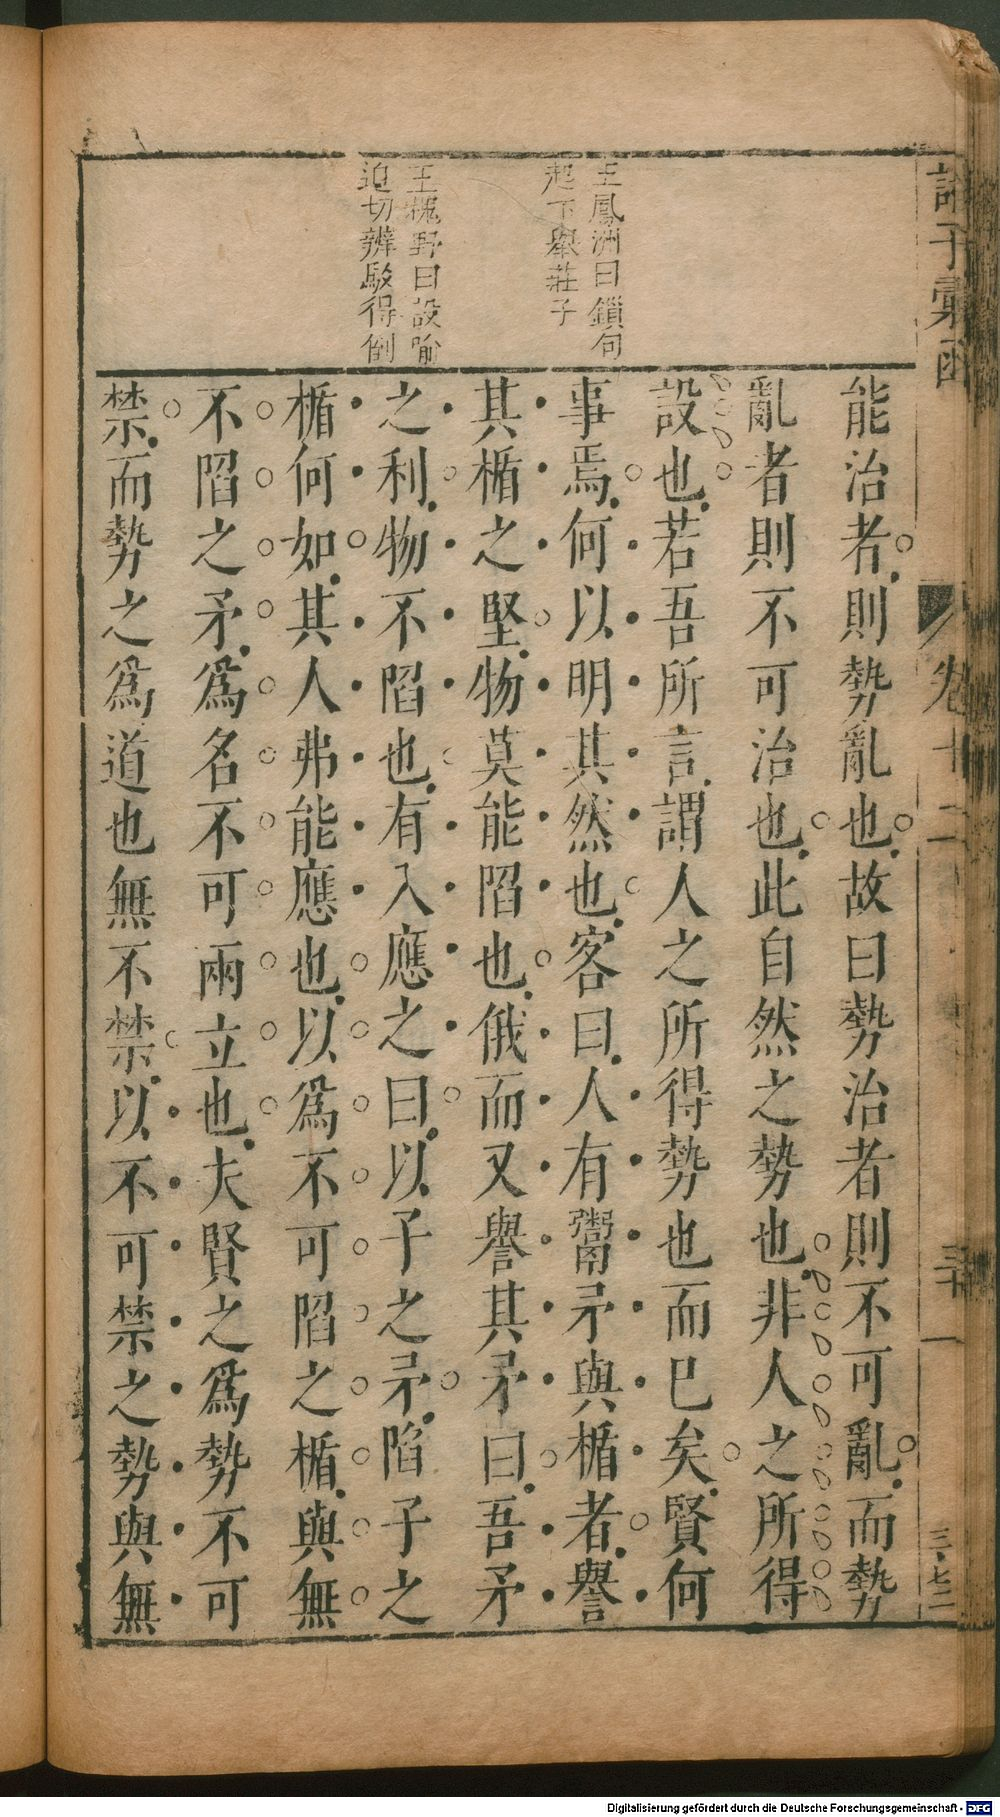 諸子彙函
卷十二
三十一
三七二
王鳳洲曰鎖句
起下舉莊子
王槐野曰設喻
迫切辨駁得倒
能治者則勢亂也故曰勢治者則不可亂而勢
亂者則不可治也此自然之勢也非人之所得
設也若吾所言謂人之所得勢也而巳矣賢何
事焉何以明其然也客曰人有鬻矛與楯者譽
其楯之堅物莫能陷也俄而又譽其矛曰吾矛
之利物不陷也有入應之曰以子之矛陷子之
楯何如其人弗能應也以為不可陷之楯與無
不陷之矛為名不可兩立也夫賢之為勢不可
禁而勢之為道也無不禁以不可禁之勢與無
Digitalisierung gefördert durch die Deutsche Forschungsgemeinschaft - DFG